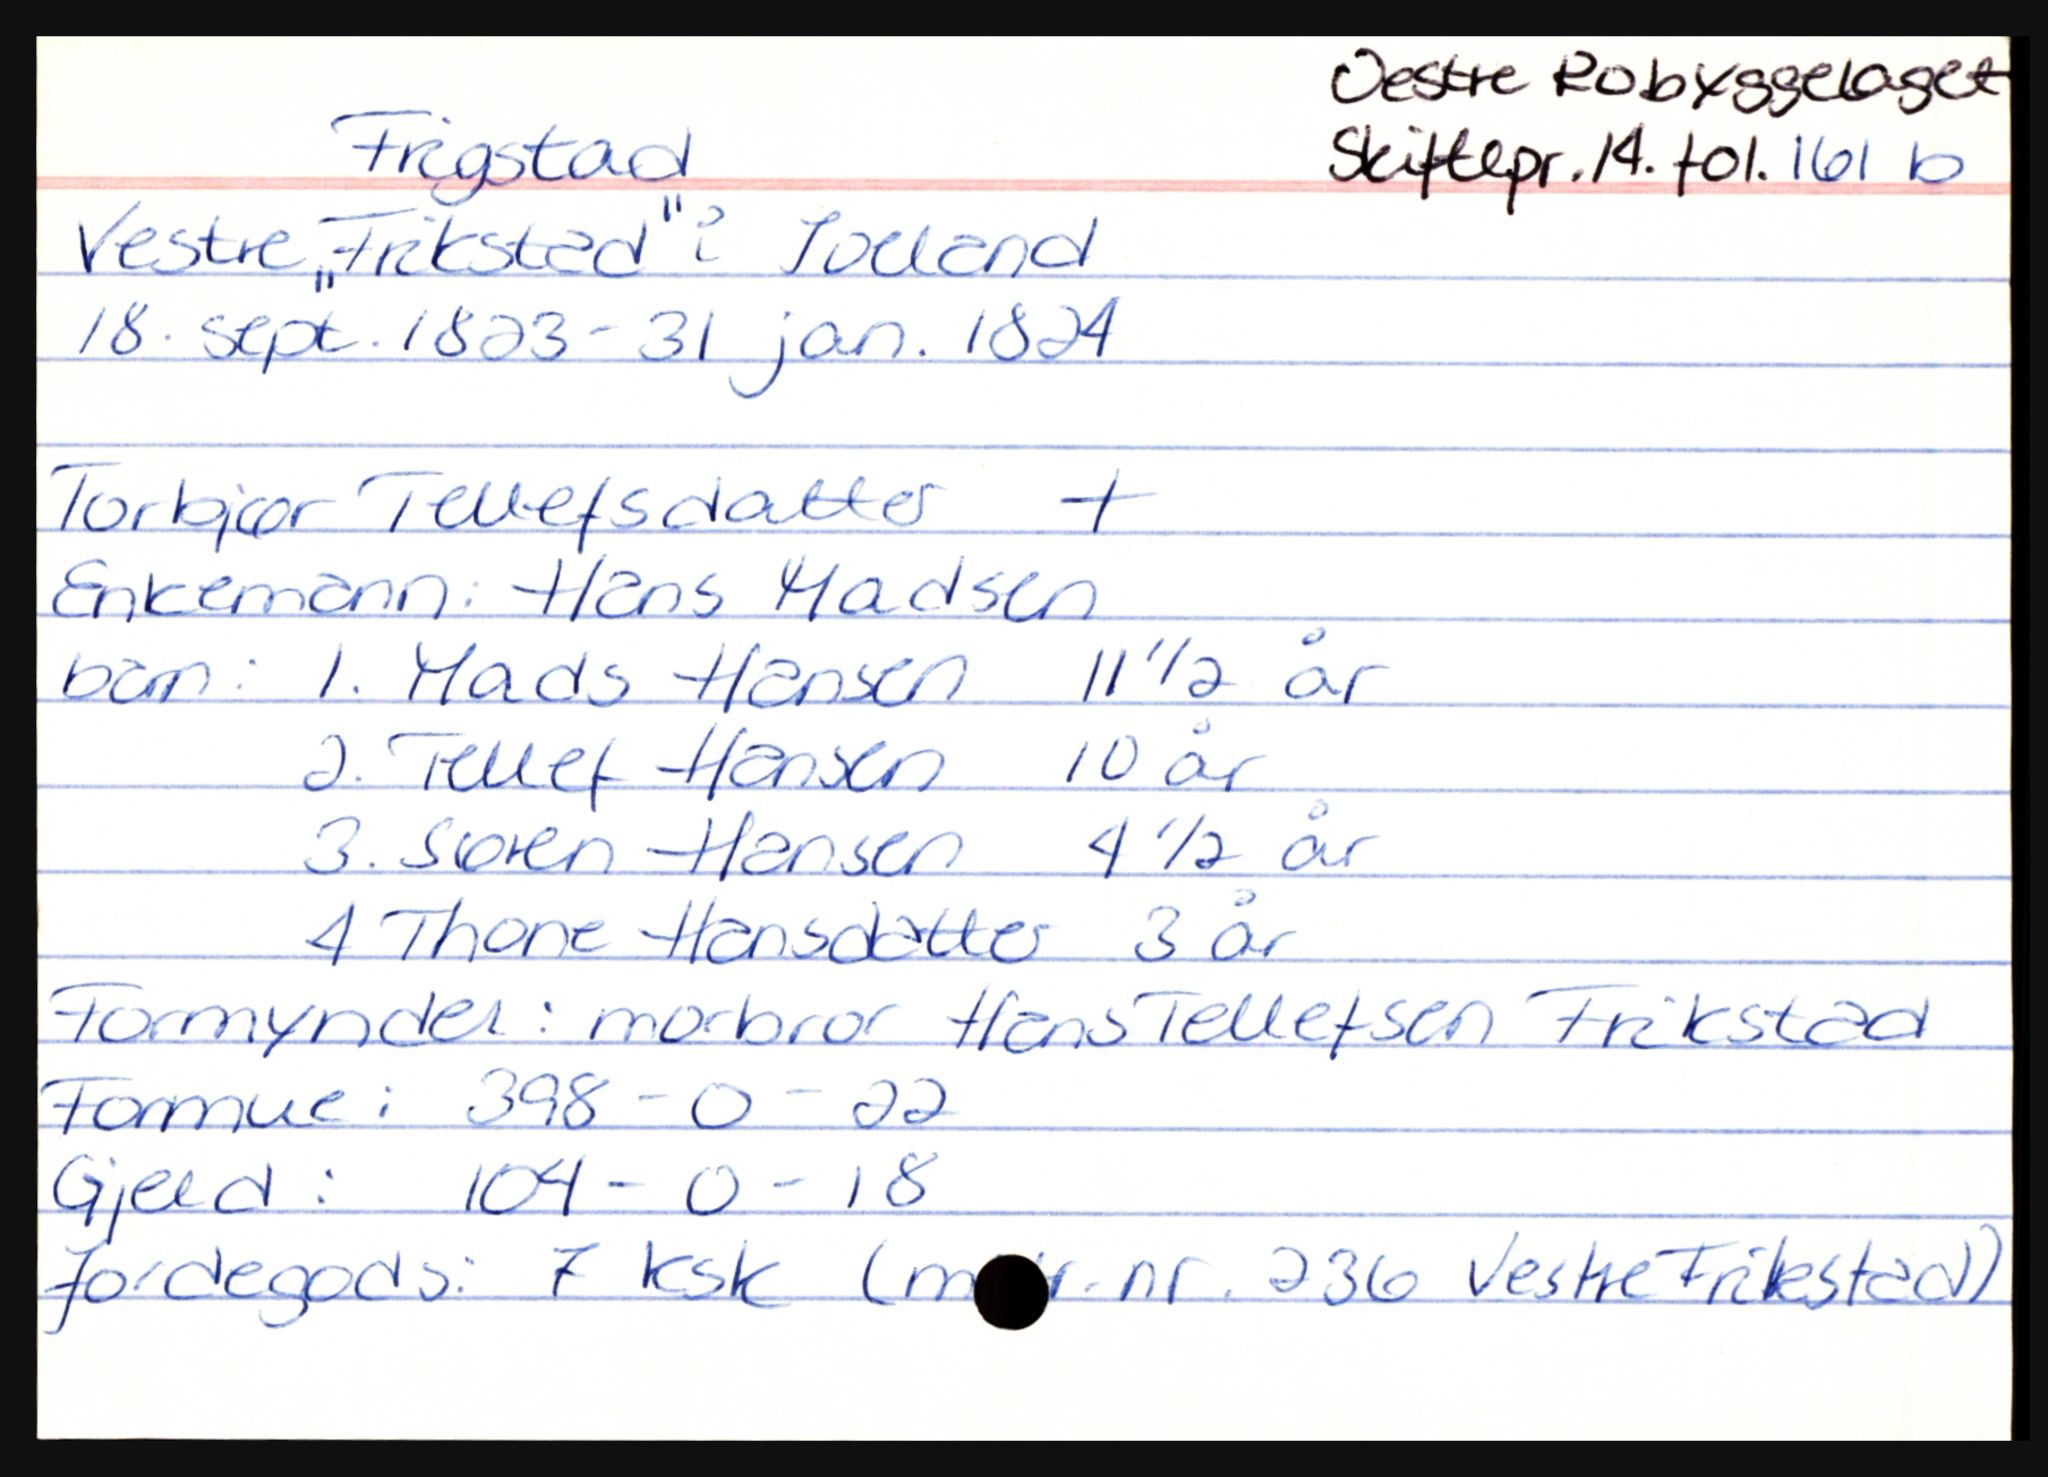 Oestre Robyggelaget
Skiftepr. 14. fol. 161 b
Frigstad
Vestre „Frikstad" i Ioeland
18. sept. 1823 - 31 jan. 1824
Torbjør Tellefsdatter +
Enkemann: Hans Madsen
barn: 1. Mads Hansen 11 1/2 år
2. Tellef Hansen 10 år
3. Søren Hansen 4 1/2 år
4 Thone Hansdatter 3 år
Formynder: morbror Hans Tellefsen Frikstad
Formue: 398 - 0 - 22
Gjeld: 104 - 0 - 18
Jordegods: 7 ksk (matr. nr. 236 Vestre Frikstad)